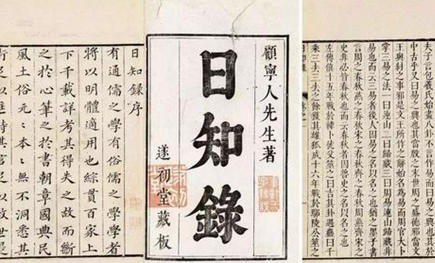 夫子言包羲氏始畫八卦不言作易而曰易之興也其於
中古乎又曰易之興也其當殷之末世周之盛德邪當文
王與紂之事邪是文王所作之辭始名為易而周官大卜
掌三易之法一曰連山二曰歸藏三曰周易連山歸藏非
易也而云三易者後人因易之名以名之也猶之墨子書
言周之春秋燕之春秋宋之春秋齊之春秋周燕齊宋之
史非必皆春秋也而云春秋者因魯史之名以名之也
左傳僖十五年戰於韓卜徒父筮之曰吉其卦遇蠱曰千
乘三去三去之餘獲其雄狐成十六年戰於鄢陵公筮之
顧寧人先生著
日知錄
遂初堂藏板
日知錄序
有通儒之學有俗儒之學學者
將以明體適用也綜貫百家上
下千載詳考其得失之故而斷
之於心筆之於書朝章國典民
風土俗元元本本無不洞悉其